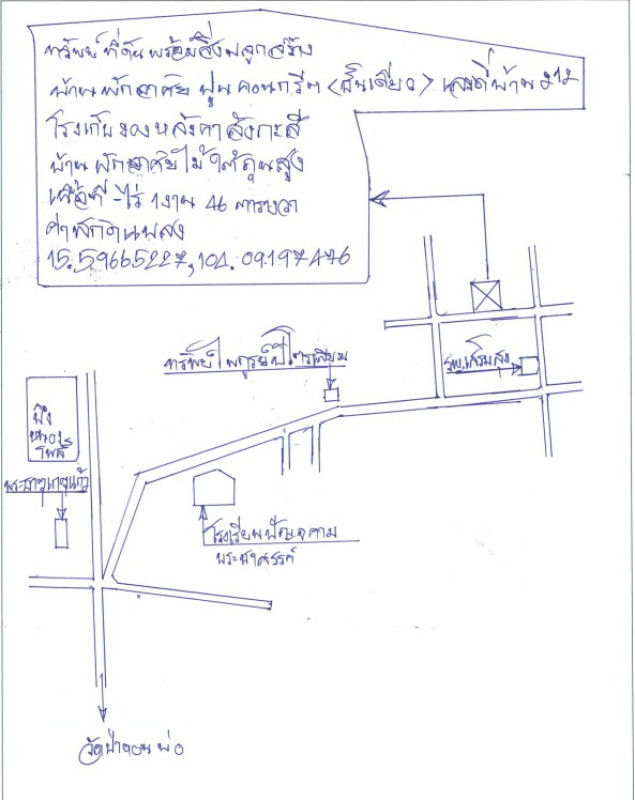 ทรัพย์ ที่ดินพร้อมสิ่งปลูกสร้าง
บ้านพักอาศัย ปูนคอนกรีต (ชั้นเดียว) เลขที่บ้าน 212
โรงเก็บของหลังคาสังกะสี
บ้านพักอาศัยไม้ใต้ถุนสูง
เนื้อที่ -ไร่ 1งาน 46 ตารางวา
ค่าพิกัดแปลง
15.59665227,104.09197476
ทรัพย์ไพฑูรย์ปิโตรเลียม
รพ.เสริมสุข
บึง
หนอง
โพธิ์
พระธาตุ
โรงเรียน
วัดป่าดอนพ่อ